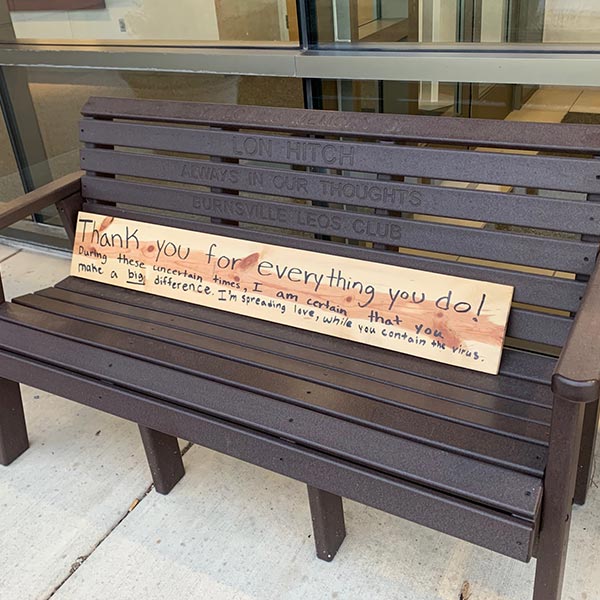 LON HITCH
ALWAYS IN OUR THOUGHTS
BURNSVILLE LEOS CLUB
Thank you for everything you do!
During these uncertain times, I am certain that you
make a big difference. I'm spreading love, while you contain the virus.